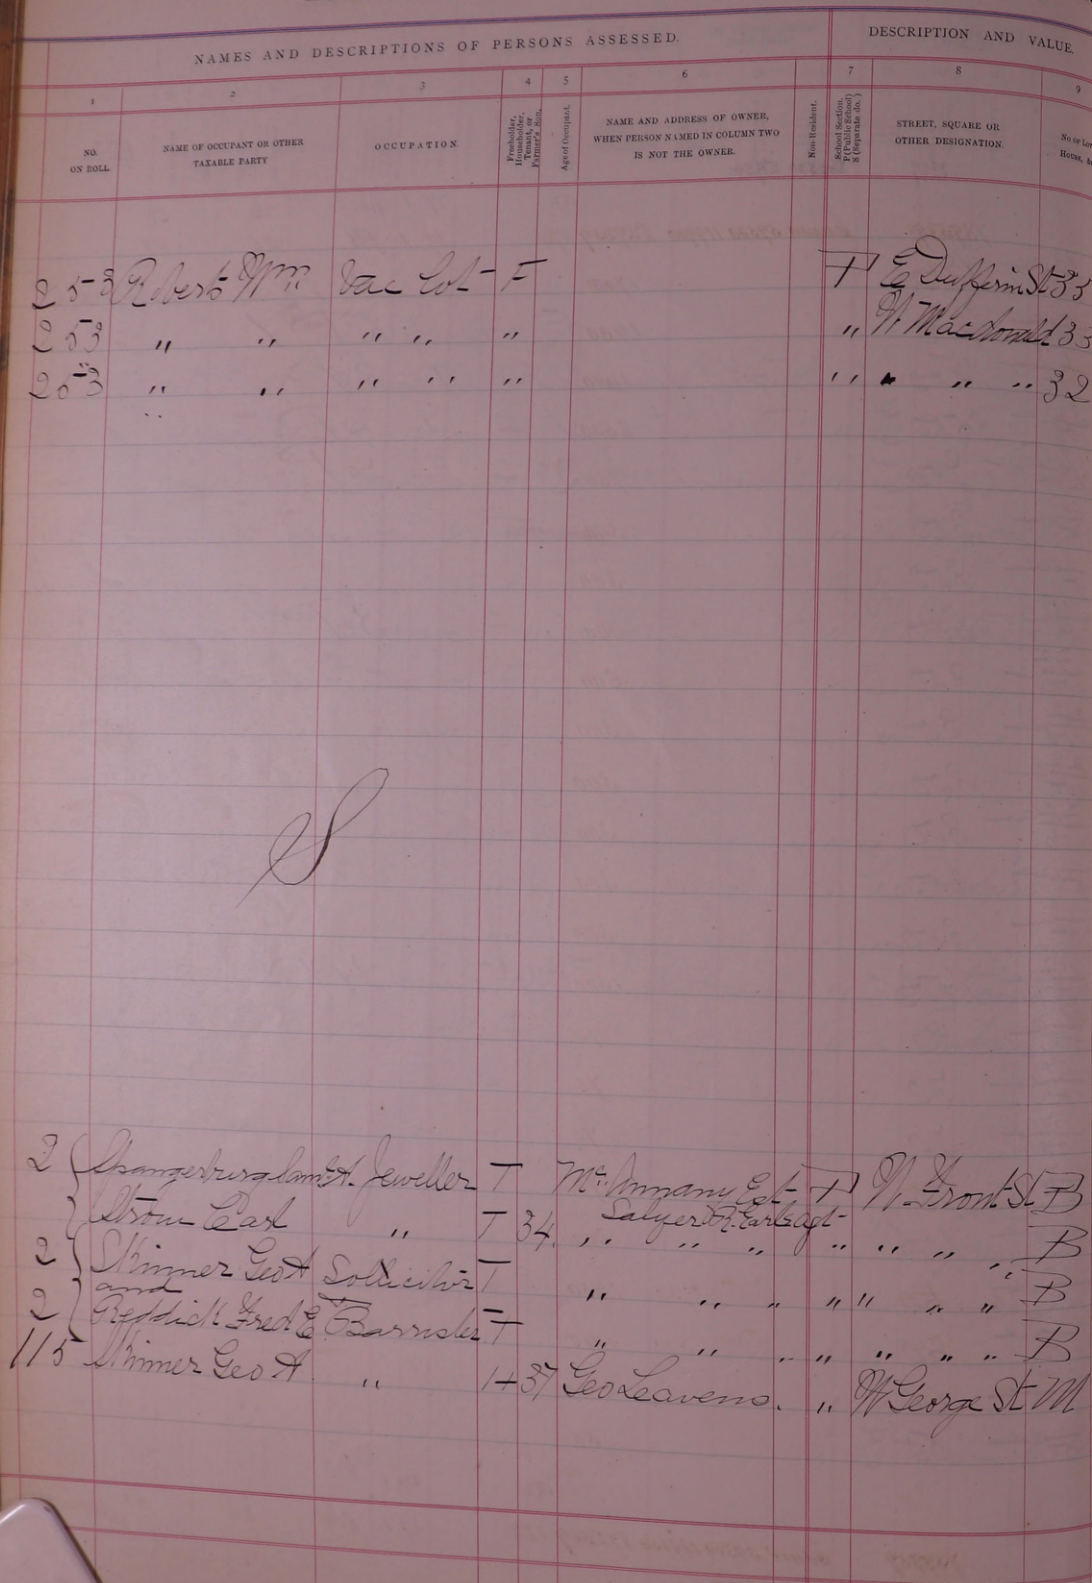 NAMES AND DESCRIPTIONS OF PERSONS ASSESSED.
DESCRIPTION AND VALUE.
1 2 3 4 5 6 7 8 9
NO. ON ROLL
NAME OF OCCUPANT OR OTHER TAXABLE PARTY
OCCUPATION
Freeholder, Householder, Tenant, or Farmer's Son.
Age of Occupant.
NAME AND ADDRESS OF OWNER, WHEN PERSON NAMED IN COLUMN TWO IS NOT THE OWNER.
Non-Resident.
School Section. P (Public School) S (Separate do.)
STREET, SQUARE OR OTHER DESIGNATION.
No of Lot House, &
253 Roberts Wm Vac Lot F P E Dufferin St 33
253 " " " " " " W Macdonald 33
253 " " " " " " " " " 32
S
2 Spangenburg A. Jeweller T Mc Annany Est P N. Front St B
Salyer R. Earl agt
Strom Carl " T 34 " " " " " " " B
2 Skinner Geo A Sollicitor T " " " " " " " B
and
2 Reddick Fred E Barrister T " " " " " " " B
115 Skinner Geo A " H 37 Geo Leavens. " W George St M